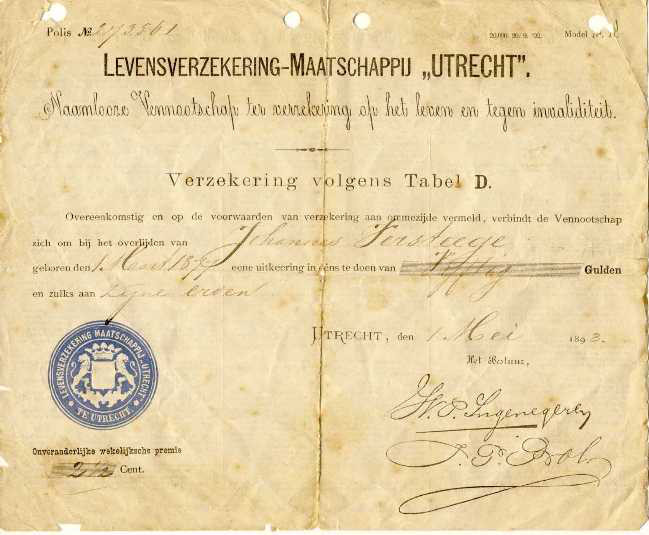 Polis № 273561
20.000. 20. 9. '92. Model
LEVENSVERZEKERING-MAATSCHAPPIJ „UTRECHT".
Naamlooze Vennootschap ter verzekering op het leven en tegen invaliditeit.
Verzekering volgens Tabel D.
Overeenkomstig en op de voorwaarden van verzekering aan ommezijde vermeld, verbindt de Vennootschap
zich om bij het overlijden van Johannes Versteege
geboren den 1 Maart eene uitkeering in ééns te doen van Vijftig Gulden
en zulks aan zijne erven
UTRECHT, den 1 Mei 1893.
Het Bestuur,
LEVENSVERZEKERING MAATSCHAPPIJ „UTRECHT"
TE UTRECHT.
Onveranderlijke wekelijksche premie
2½ Cent.